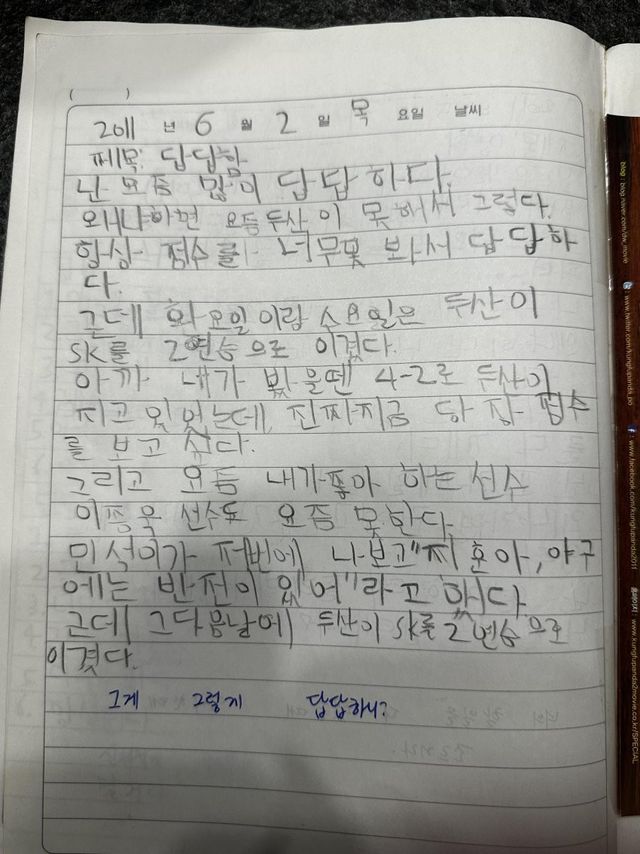 ( )
2011 년 6 월 2 일 목 요일 날씨
제목: 답답함
난 요즘 많이 답답하다.
왜냐하면 요듬 두산이 못해서 그렇다.
항상 점수를 너무못 봐서 답답하
다.
근데 화요일이랑 수요일은 두산이
SK를 2연승으로 이겼다.
아까 내가 봤을땐 4-2로 두산이
지고 있었는데, 진짜지금 당장 점수
를 보고 싶다.
그리고 요듬 내가좋아 하는 선수
이종욱 선수도 요즘 못한다
민석이가 저번에 나보고 "지훈아, 야구
에는 반전이 있어"라고 했다
근데 그다음날에 두산이 SK를 2연승으로
이겼다.
그게 그렇게 답답하니?
blog : blog.naver.com/cine_movie
: www.twitter.com/kungfupanda_po
f : www.facebook.com/kungfupanda2011
홈페이지 : www.kungfupanda2movie.co.kr/SPECIAL